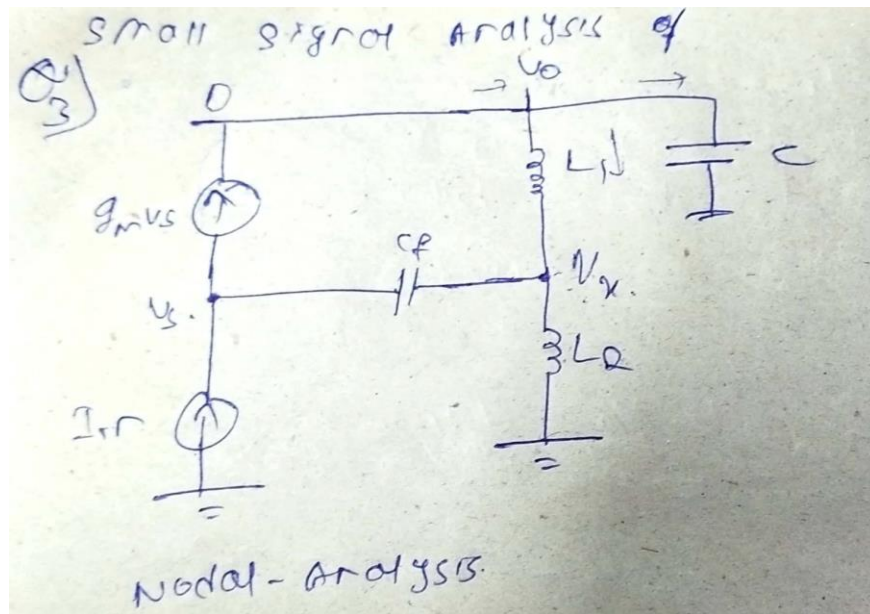 Small Signal Analysis of
Q3)
D
Vo
L1
C
gmvs
Cf
Vs.
Vx.
L2
Iin
Nodal-Analysis.